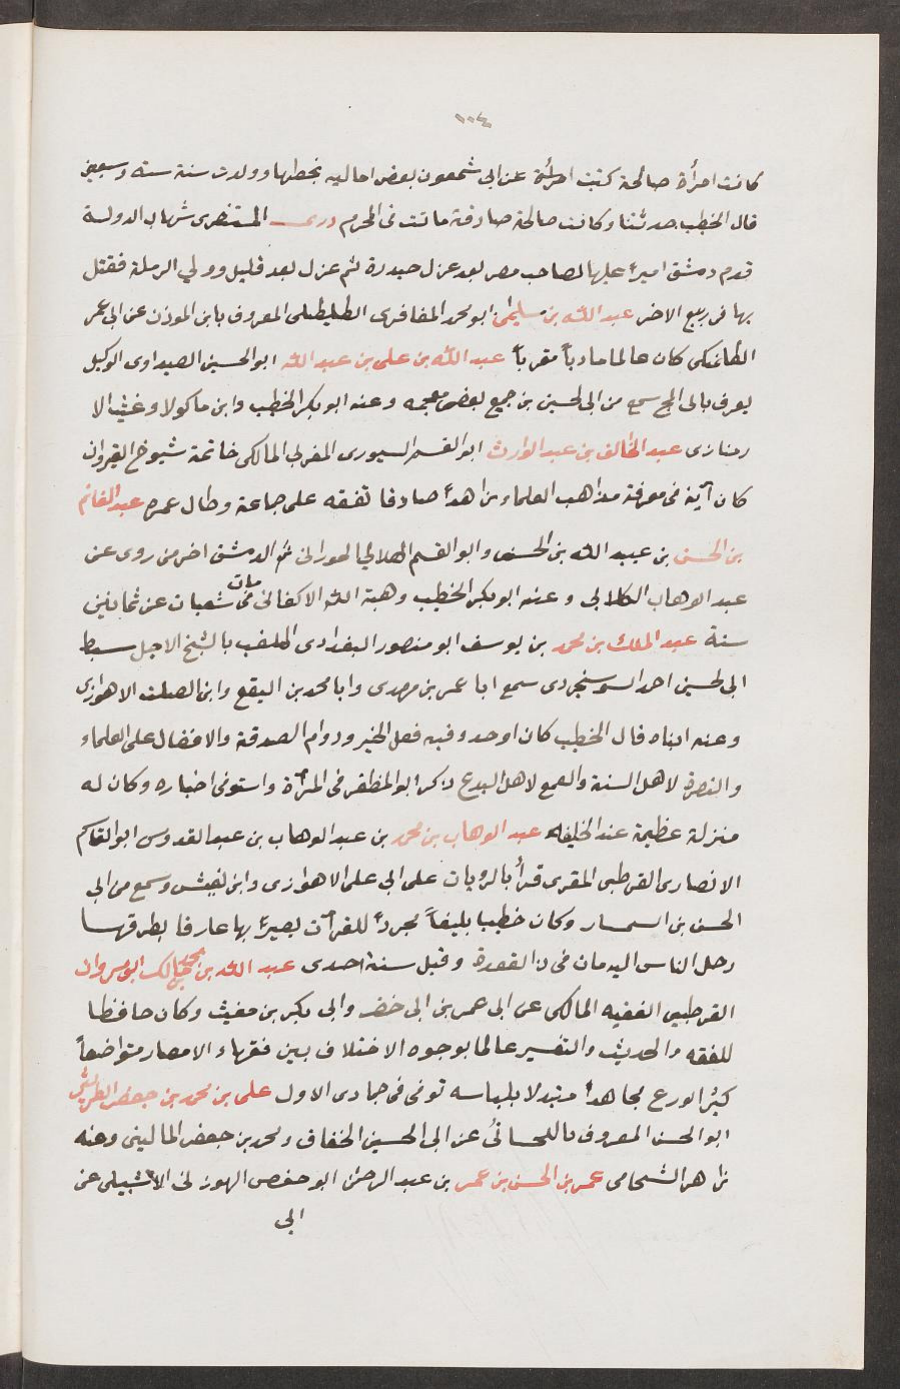 ١٠٤
كانت امرأة صالحة كتبت عن ابى شمعون بعض اماليه بخطها وولدت سنة ستة وسبعين
قال الخطيب حدثتنا وكانت صالحة صادقة ماتت فى المحرم درى المستنصرى شهاب الدولة
قدم دمشق اميرًا عليها لصاحب مصر بعد عزل حيدرة ثم عزل بعد قليل وولي الرملة فقتل
بها فى ربيع الاخر عبد الله بن سليمٰن ابو محمد المغافرى الطليطلى المعروف بابن الموذن عن ابى عمر
الطلمنكى كان عالما مادباً مقرباً عبد الله بن على بن عبد الله ابو الحسين الصيداوى الوكيل
يعرف بابن المخ سمع من ابى لحسين بن جميع بعض معجمه وعنه ابو بكر الخطيب وابن ماكولا وغيث الا
رمنازى عبد الخالق بن عبد الوارث ابو القسم السيورى المغربي المالكى خاتمة شيوخ القيروان
كان آية فى معرفة مذاهب العلماء زاهداً صادقا تفقه على جماعة وطال عمره عبد الغانم
بن الحسن بن عبيد الله بن الحسن وابو القسم الهلالي الحورانى ثم الدمشق اخر من روى عن
عبد الوهاب الكلابى وعنه ابو بكر الخطيب وهبة الله الاكفانى مات فى شعبان عن ثمانين
سنة عبد الملك بن محمد بن يوسف ابو منصور البغدادى الملقب بالشيخ الاجل سبط
ابى لحسين احمد السوسنجردى سمع ابا عمر بن مهدى وابا محمد بن البيع وابن الصلت الاهوازى
وعنه ابناه قال الخطيب كان اوحد وقته فعل الخير ودوام الصدقة والافضال على العلماء
والنصرة لاهل السنة والقمع لاهل البدع ذكره ابو المظفر فى المرآة واستوفى اخباره وكان له
منزلة عظيمة عند الخليفه عبد الوهاب بن محمد بن عبد الوهاب بن عبد القدوس ابو القاسم
الانصارى القرطبى المقرى قرأ بالرويات على ابى على الاهوازى وابن نفيس وسمع من ابى
الحسن بن السمسار وكان خطيبا بليغاً مجردًا للقرآت بصيرًا بها عارفا بطرقها
رحل الناس اليه مات فى ذى القعدة وقيل سنة احدى عبد الله بن محمد مالك ابو مروان
القرطبى الفقيه المالكى عن ابى عمر بن ابى خضر وابى بكر بن مغيث وكان حافظا
للفقه والحديث والتفسير عالما بوجوه الاختلاف بين فقهاء الامصار متواضعاً
كثير الورع مجاهداً متبدلا بلباسه توفى فى جمادى الاول على بن محمد بن جعفر الطريثيثى
ابو الحسن المعروف باللحسانى عن ابى الحسين الخفاف ومحمد بن جعفر المالينى وعنه
زاهر الشحامى عمر بن الحسن بن عمر بن عبد الرحمٰن ابو حفص الهوزنى الاشبيلى عن
ابى